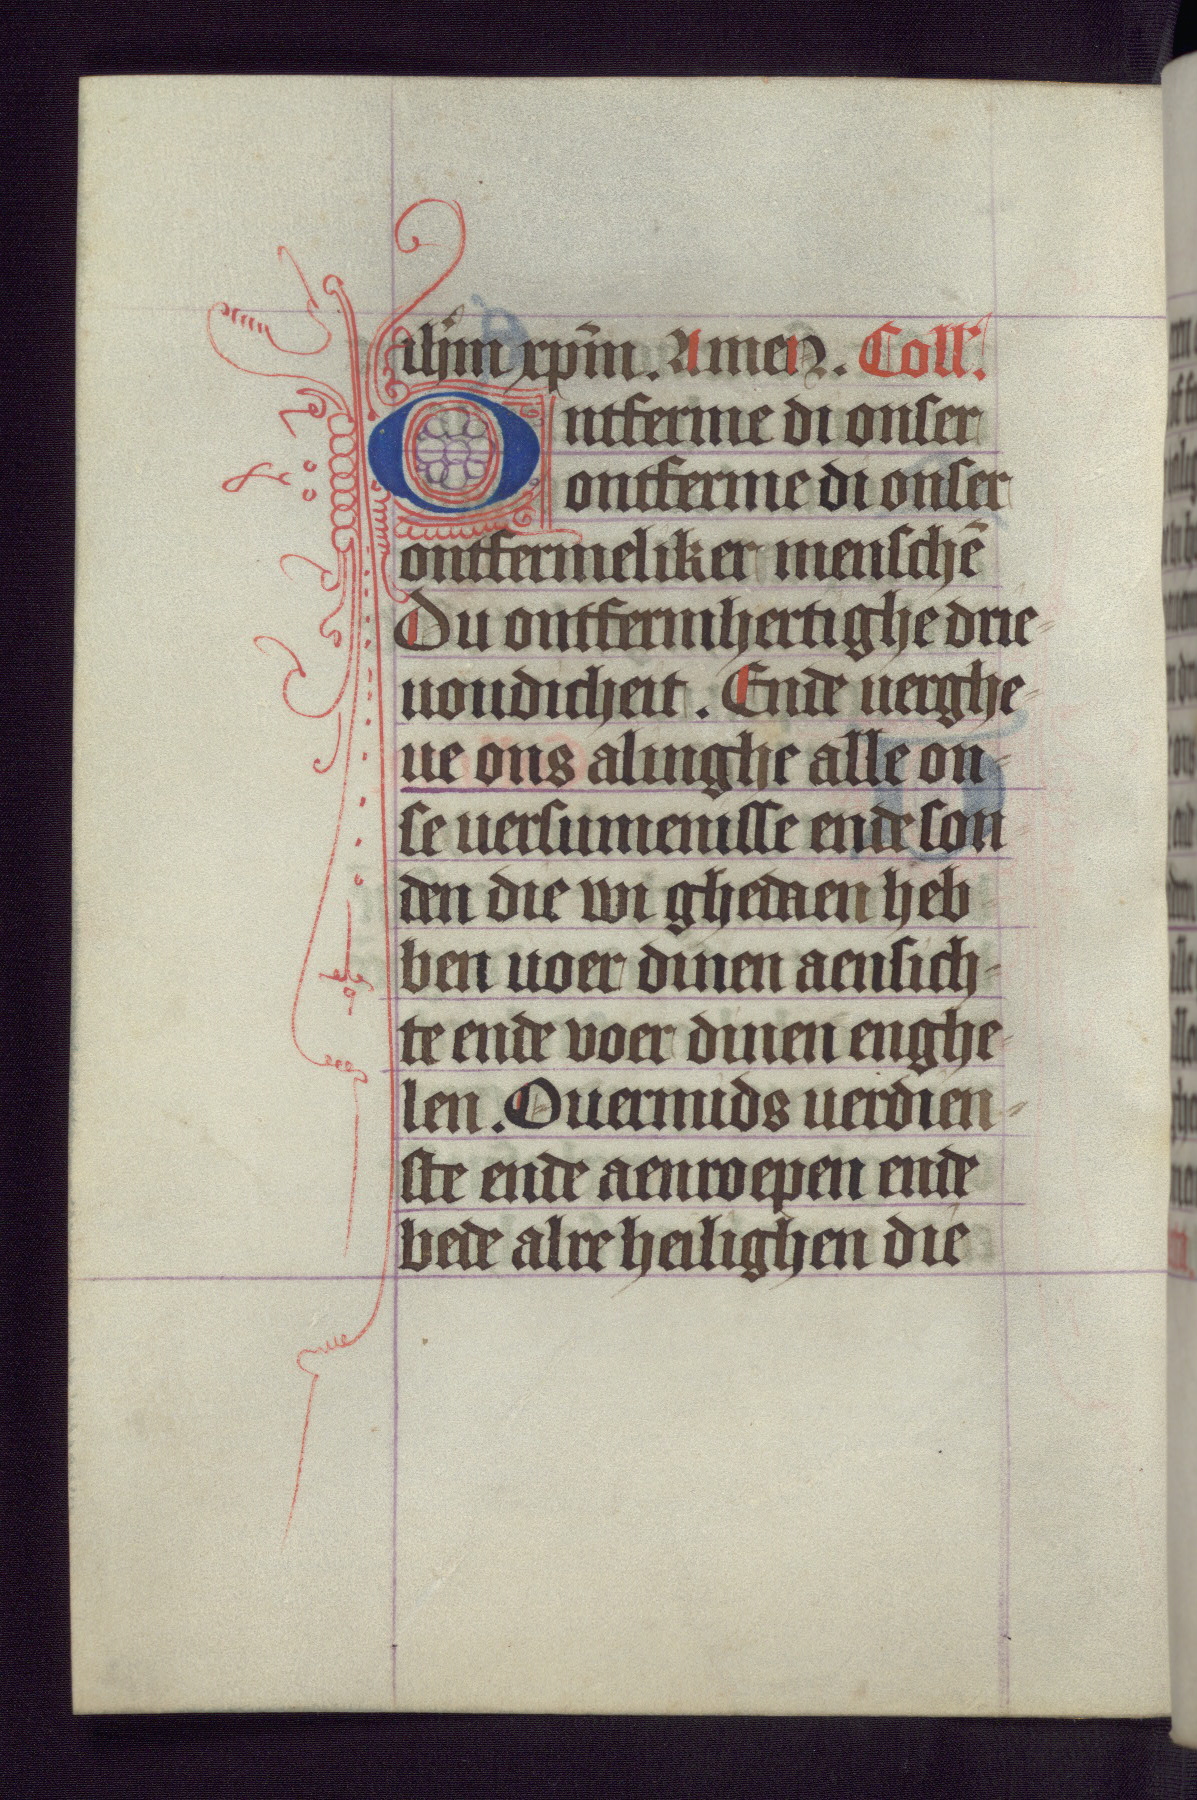 ihm̄ xpm̄. Amen. Coll'.
Ontferme di onser
ontferme di onser
ontfermeliker menschē
Du ontfermhertighe drie-
uoudicheit. Ende uerghe-
ue ons alinghe alle on-
se uersumenisse ende son
den die wi ghedaen heb
ben uoer dinen aensich-
te ende voer dinen enghe-
len. Ouermids uerdien-
ste ende aenroepen ende
bede alre heilighen die